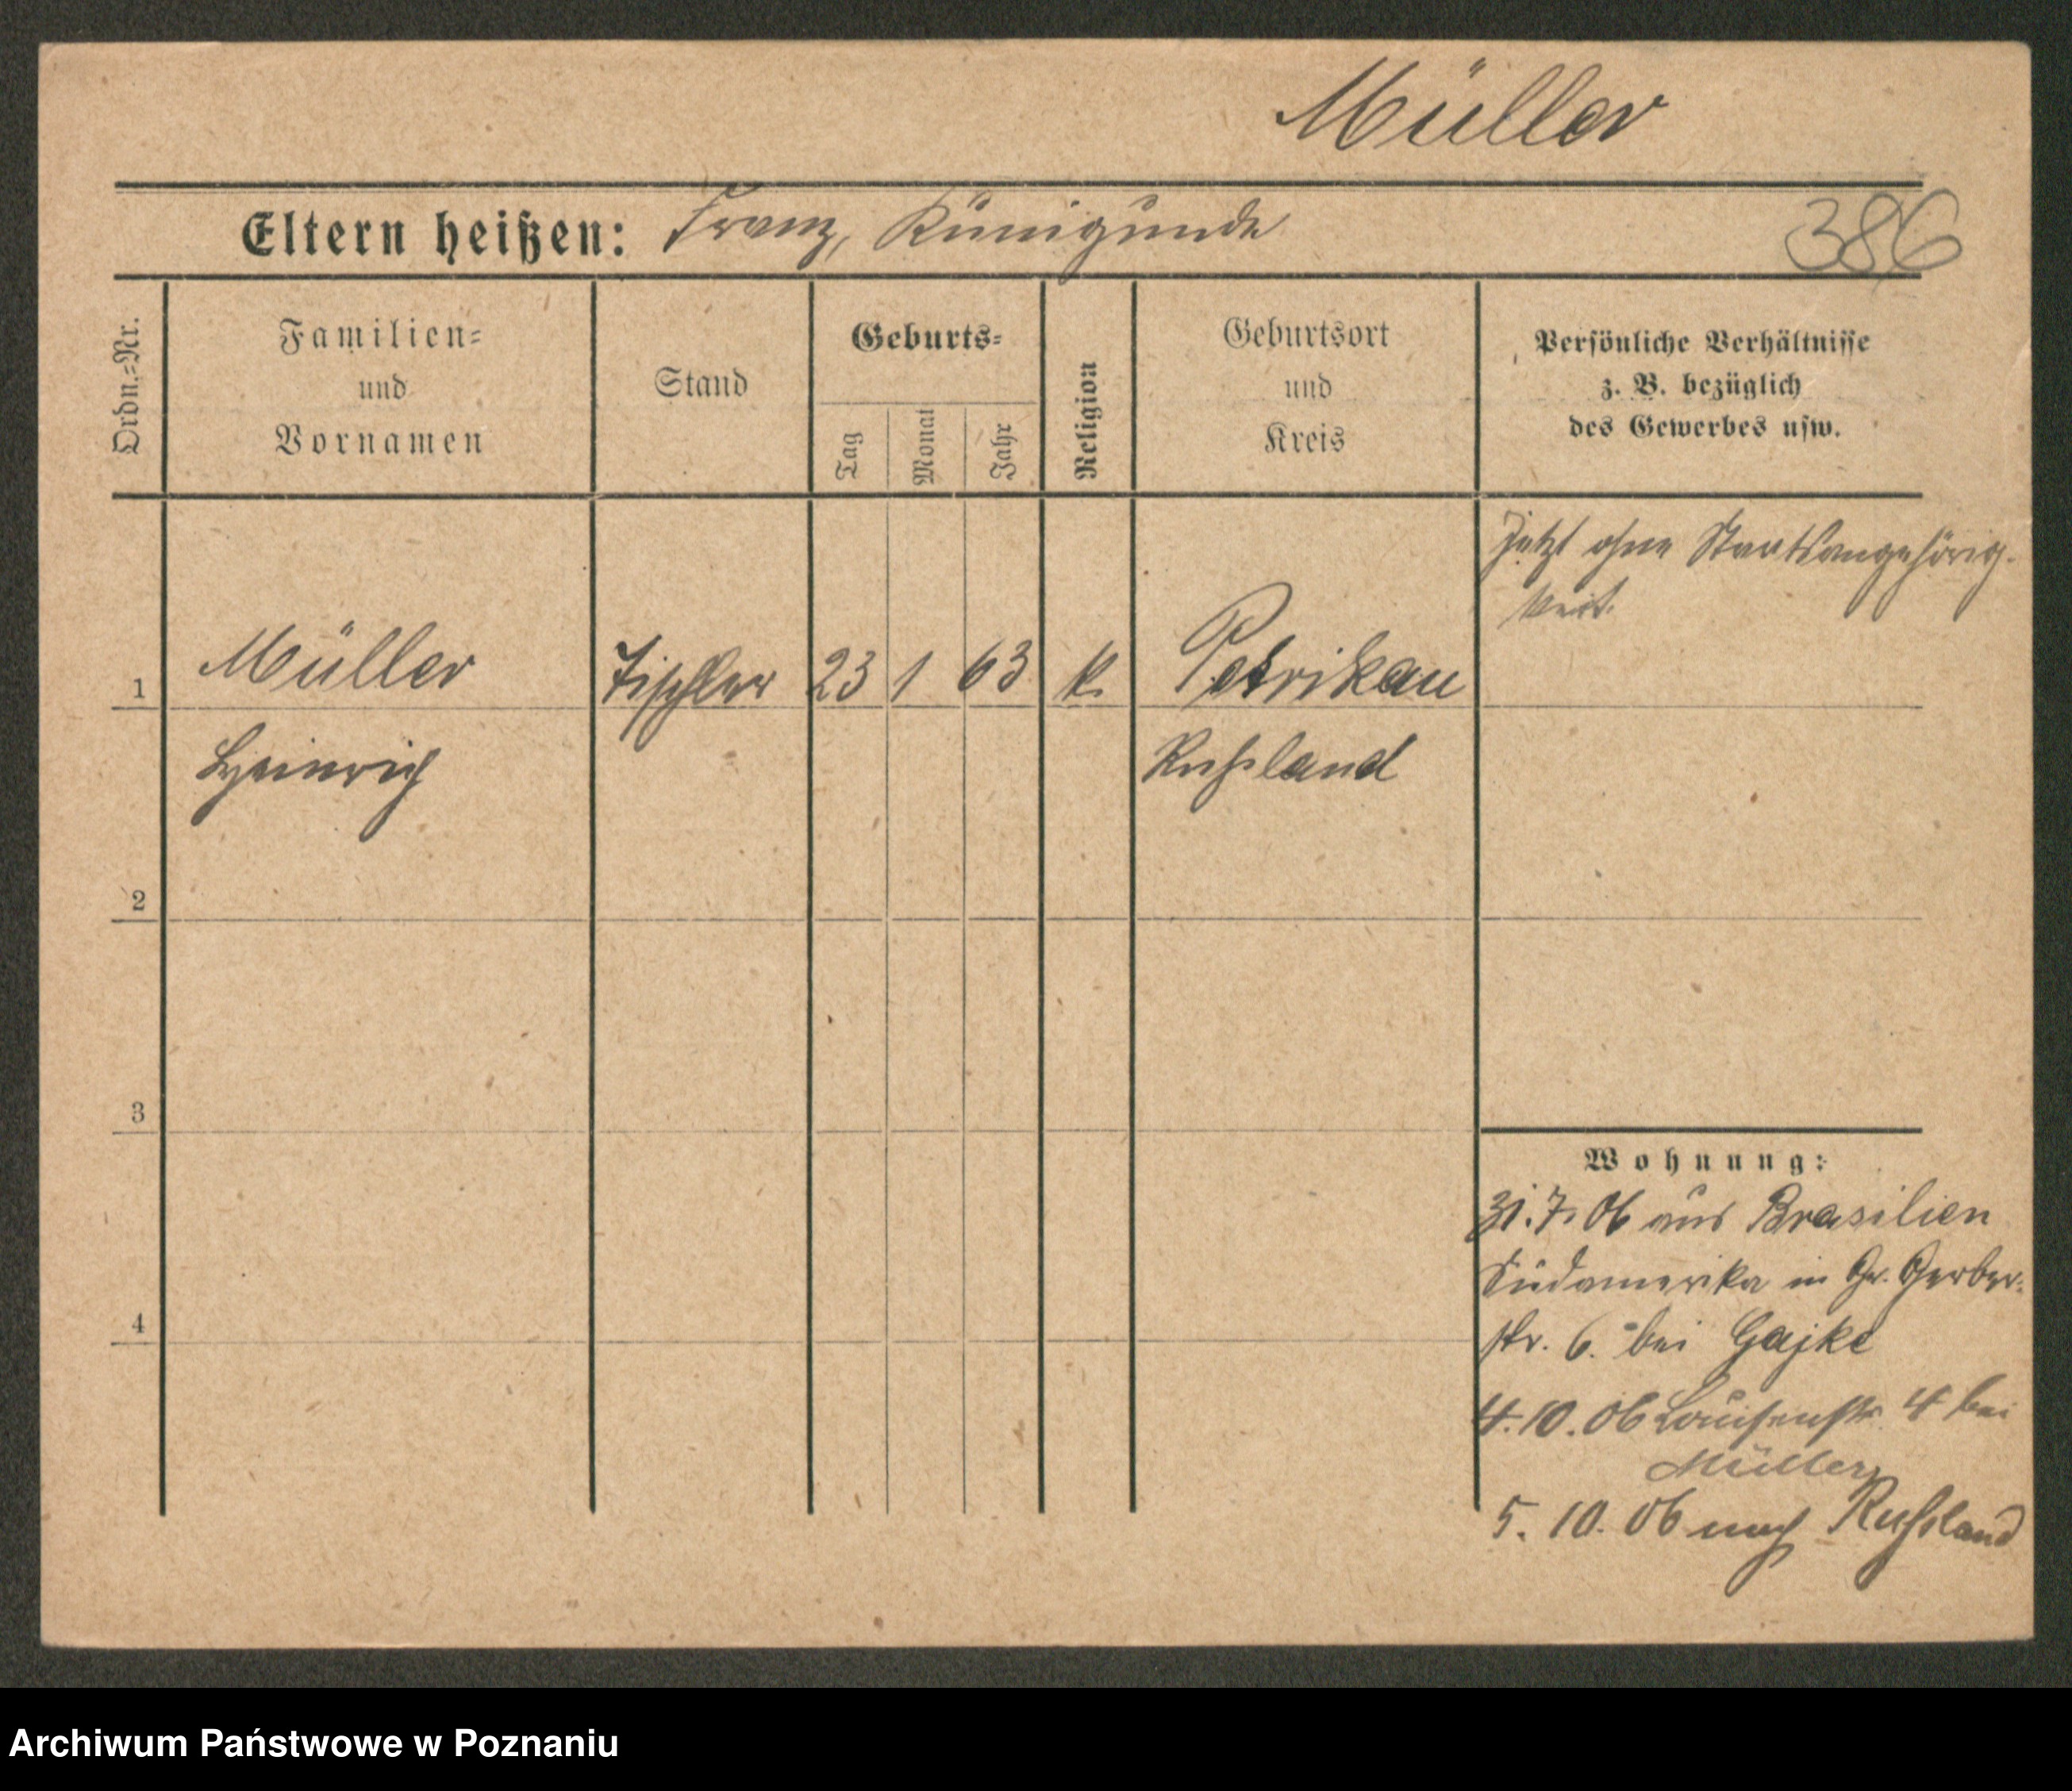 Müller
Eltern heißen: Franz, Kunigunde
386
Ordn.-Nr.
Familien-
und
Vornamen
Stand
Geburts-
Tag
Monat
Jahr
Religion
Geburtsort
und
Kreis
Persönliche Verhältnisse
z. B. bezüglich
des Gewerbes usw.
Jetzt ohne Staatsangehörig-
keit.
1 Müller Tischler 23 1 63 k. Petrikau
Heinrich Russland
2
3
4
Wohnung:
31.7.06 aus Brasilien
Südamerika in Gr. Gerber-
str. 6. bei Gajke
4.10.06 Louisenstr. 4 bei
Müller
5. 10. 06 nach Russland
Archiwum Państwowe w Poznaniu